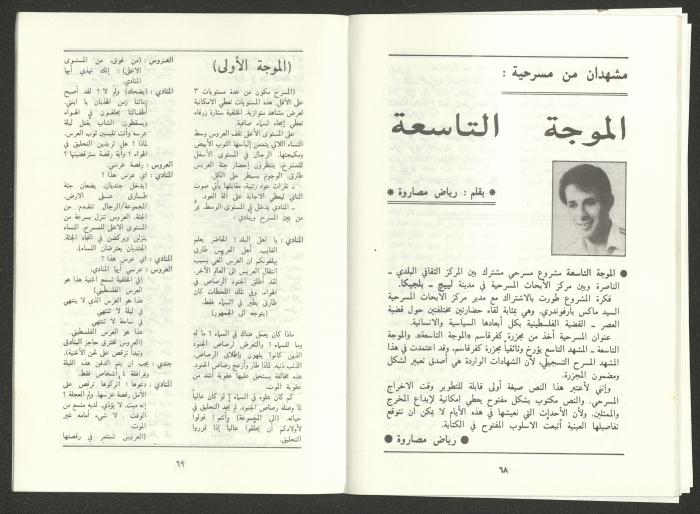 مشهدان من مسرحية :
الموجة التاسعة
* بقلم : رياض مصاروة *
● الموجة التاسعة مشروع مسرحي مشترك بين المركز الثقافي البلدي ـ
الناصرة وبين مركز الأبحاث المسرحية في مدينة لييج ـ بلجيكا.
فكرة المشروع طورت بالاشتراك مع مدير مركز الأبحاث المسرحية
السيد ماكس بارفوندري، وهي بمثابة لقاء حضارتين مختلفتين حول قضية
العصر ـ القضية الفلسطينية بكل أبعادها السياسية والانسانية.
عنوان المسرحية أخذ من مجزرة كفرقاسم «الموجة التاسعة». والموجة
التاسعة ـ المشهد التاسع يؤرخ وثائقياً مجزرة كفرقاسم. وقد اعتمدت في هذا
المشهد المسرح التسجيلي، لأن الشهادات الواردة هي أصدق تعبير لشكل
ومضمون المجزرة.
وإنني لأعتبر هذا النص صيغة أولى قابلة للتطوير وقت الاخراج
المسرحي. والنص مكتوب بشكل مفتوح يعطي امكانية لإبداع المخرج
والممثلين. ولأن الأحداث التي نعيشها في هذه الأيام لا يمكن ان نتوقع
تفاصيلها العينية أتبعت الاسلوب المفتوح في الكتابة.
● رياض مصاروة ●
٦٨
(الموجة الأولى)
(المسرح مكون من عدة مستويات ٣
على الأقل. هذه المستويات تعطي الامكانية
لعرض مشاهد متوازية. الخلفية ستارة زرقاء
تعطي إيحاء لسماء صافية.
على المستوى الأعلى تقف العروس وسط
النساء اللاتي يتممن إلباسها الثوب الأبيض
ومكيجتها. الرجال في المستوى الأسفل
للمسرح، ينتظرون إحضار جثة العريس
طارق. الوجوم يسيطر على الكل.
ـ نقرات عود رتيبة. مقابلها يأتي صوت
الناي ليعطي الاجابة على آلة العود.
ـ المنادي يدخل في المستوى الوسط. يمر
من بين المسرح وينادي :
المنادي : يا اهل البلد ! الحاضر يعلم
الغايب. أهل العريس طارق
يبلغونكم ان العرس الغي بسبب
انتقال العريس الى العالم الآخر.
لقد أطلق الجنود الرصاص في
الهواء. وفي تلك اللحظات كان
طارق يطير في السماء فقط.
(يتوجه الى الجمهور)
ماذا كان يعمل هناك في السماء ؟ ما له
وما للسماء ؟ والتعرض لرصاص الجنود
الذين كانوا يلهون بإطلاق الرصاص.
الذنب ذنبه. لماذا طار وأزعج رصاص الجنود.
هذه مخالفة يستحق عليها عقوبة أشد من
عقوبة الموت.
كم كان علوه في السماء ؟ لو كان عالياً
لما وصله رصاص الجنود. لم يجد التحليق في
حياته. (الى المجموعة) وأنتم ! قولوا
لأولادكم أن يحلقوا عالياً إذا قرروا
التحليق.
العروس : (من فوق، من المستوى
الاعلى) : إنك تهذي أيها
المنادي.
المنادي : (يضحك) ولم لا ؟ لقد أصبح
زماننا زمن الهذيان يا ابنتي.
أطفالنا يحلقون في الهواء
ويسقطون. الشاب يقتل ليلة
عرسه وأنت تلبسين ثوب العرس.
لماذا ؟ هل تريدين التحليق في
الهواء ؟ وأية رقصة سترقصينها ؟
العروس : رقصة عرسي.
المنادي : أي عرس هذا ؟
(يدخل جنديان، يضعان جثة
طــارق على الارض.
المجموعة/الرجال تتقدم من
الجثة. العروس تنزل بسرعة من
المستوى الاعلى للمسرح. النساء
ينزلن ويركضن في اتجاه الجثة.
الجنديان يعترضان النساء).
المنادي : أي عرس هذا !
العروس : عرسي أيها المنادي.
(في الخلفية تسمع أغنية هذا هو
العرس الفلسطيني)
هذا هو العرس الذي لا ينتهي
في ليلة لا تنتهي
في ساحة لا تنتهي
هذا هو العرس الفلسطيني.
(العروس تخترق حاجز البنادق
وتبدأ ترقص على لحن الأغنية).
جندي : يجب ان يتم الدفن هذه الليلة
وبرفقة ١٠ أشخاص فقط.
المنادي : دعوها ! أتركوها ترقص على
الأقل رقصة عرسها. ولم العجلة ؟
إنه ميت. لا يؤذي. لديه متسع من
الوقت . لا شيء أمامه غير
الموت.
(العروس تستمر في رقصتها
٦٩